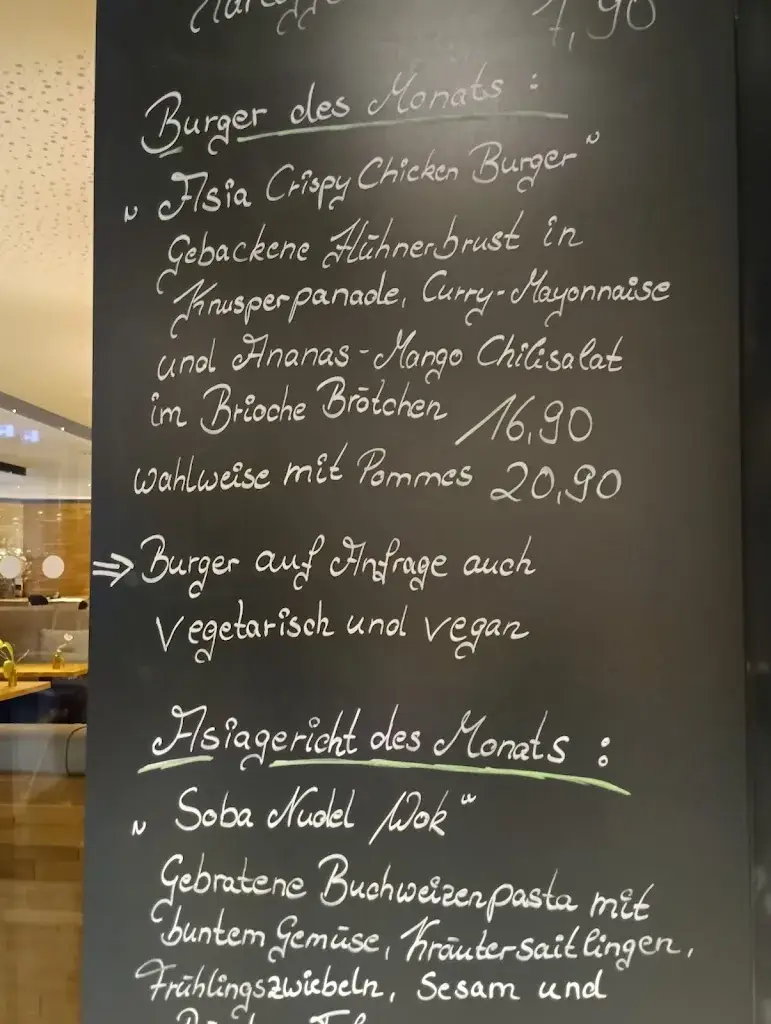 7,90
Burger des Monats :
„Asia Crispy Chicken Burger"
Gebackene Hühnerbrust in
Knusperpanade, Curry-Mayonnaise
und Ananas-Mango Chilisalat
im Brioche Brötchen 16,90
wahlweise mit Pommes 20,90
⇒ Burger auf Anfrage auch
vegetarisch und vegan
Asiagericht des Monats :
„Soba Nudel Wok"
Gebratene Buchweizenpasta mit
buntem Gemüse, Kräutersaitlingen,
Frühlingszwiebeln, Sesam und